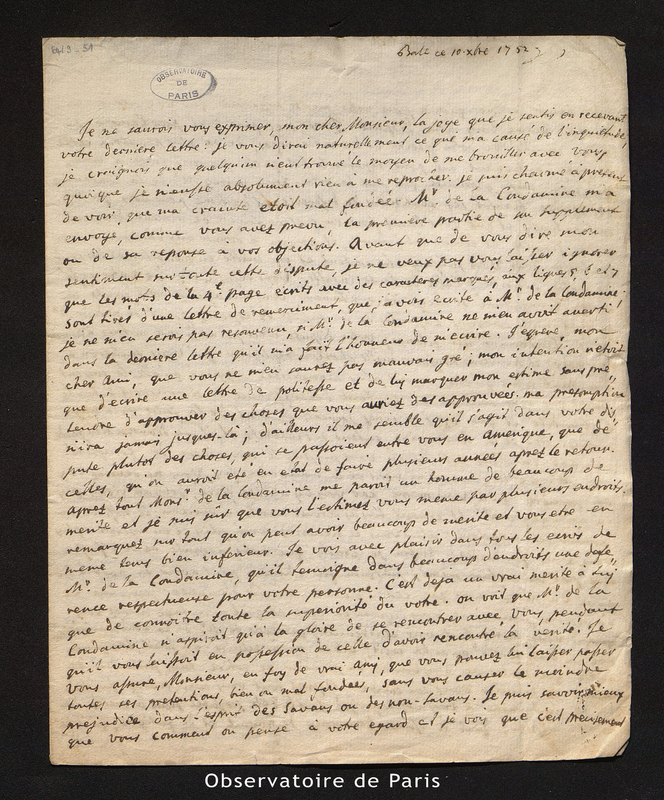 Basle ce 10.Xbre 1752
OBSERVATOIRE
DE
PARIS
Je ne saurois vous exprimer, mon cher Monsieur, la joye que je sentis en recevant
votre derniere lettre: je vous dirai naturellement ce qui m'a causé de l'inquietude,
je craignois que quelqu'un n'eut trouvé le moyen de me brouiller avec vous
quoique je n'eusse absolument rien à me reprocher. je suis charmé à present
de voir, que ma crainte etoit mal fondée. Mr. de la Condamine m'a
envoyé, comme vous avez prevu, la premiere partie de son supplement
ou de sa reponse à vos objections. Avant que de vous dire mon
sentiment sur toute cette dispute, je ne veux pas vous laisser ignorer
que les mots de la 4e. page ecrits avec des caracteres marqués, aux lignes 5, 6 et 7
sont tirés d'une lettre de remerciment, que j'avois ecrite à Mr. de la Condamine.
je ne m'en serois pas resouvenu, si Mr. de la Condamine ne m'en avoit averti,
dans la derniere lettre qu'il m'a fait l'honneur de m'ecrire. J'espere, mon
cher Ami, que vous ne m'en saurez pas mauvais gré; mon intention n'etoit
que d'ecrire une lettre de politesse et de luy marquer mon estime sans pre„
tendre d'approuver des choses que vous auriez desapprouvées. ma presomption
n'ira jamais jusques-là; d'ailleurs il me semble qu'il s'agit dans votre dis„
pute plutot des choses, qui se passoient entre vous en Amerique, que de
celles, qu'on auroit eté en etat de faire plusieurs années aprez le retour.
aprez tout Monsr. de la Condamine me paroit un homme de beaucoup de
merite et je suis sûr que vous l'estimez vous meme par plusieurs endroits.
remarquez sur tout qu'on peut avoir beaucoup de merite et vous etre en
meme tems bien inferieur. Je vois avec plaisir dans tous les ecrits de
Mr. de la Condamine, qu'il temoigne dans beaucoup d'endroits une defe„
rence respectueuse pour votre personne: C'est deja un vrai merite à luy
que de connoitre toute la superiorité du votre. on voit que Mr. de la
Condamine n'aspiroit qu'à la gloire de se rencontrer avec vous, pendant
qu'il vous laissoit en possession de celle d'avoir rencontré la verité. Je
vous assure, Monsieur, en foy de vrai ami, que vous pouvez lui laisser passer
toutes ses pretentions, bien ou mal fondées, sans vous causer le moindre
prejudice dans l'esprit des Savans ou des non-savans. Je puis savoir mieux
que vous comment on pense à votre egard et je vois que c'est precisement
Observatoire de Paris